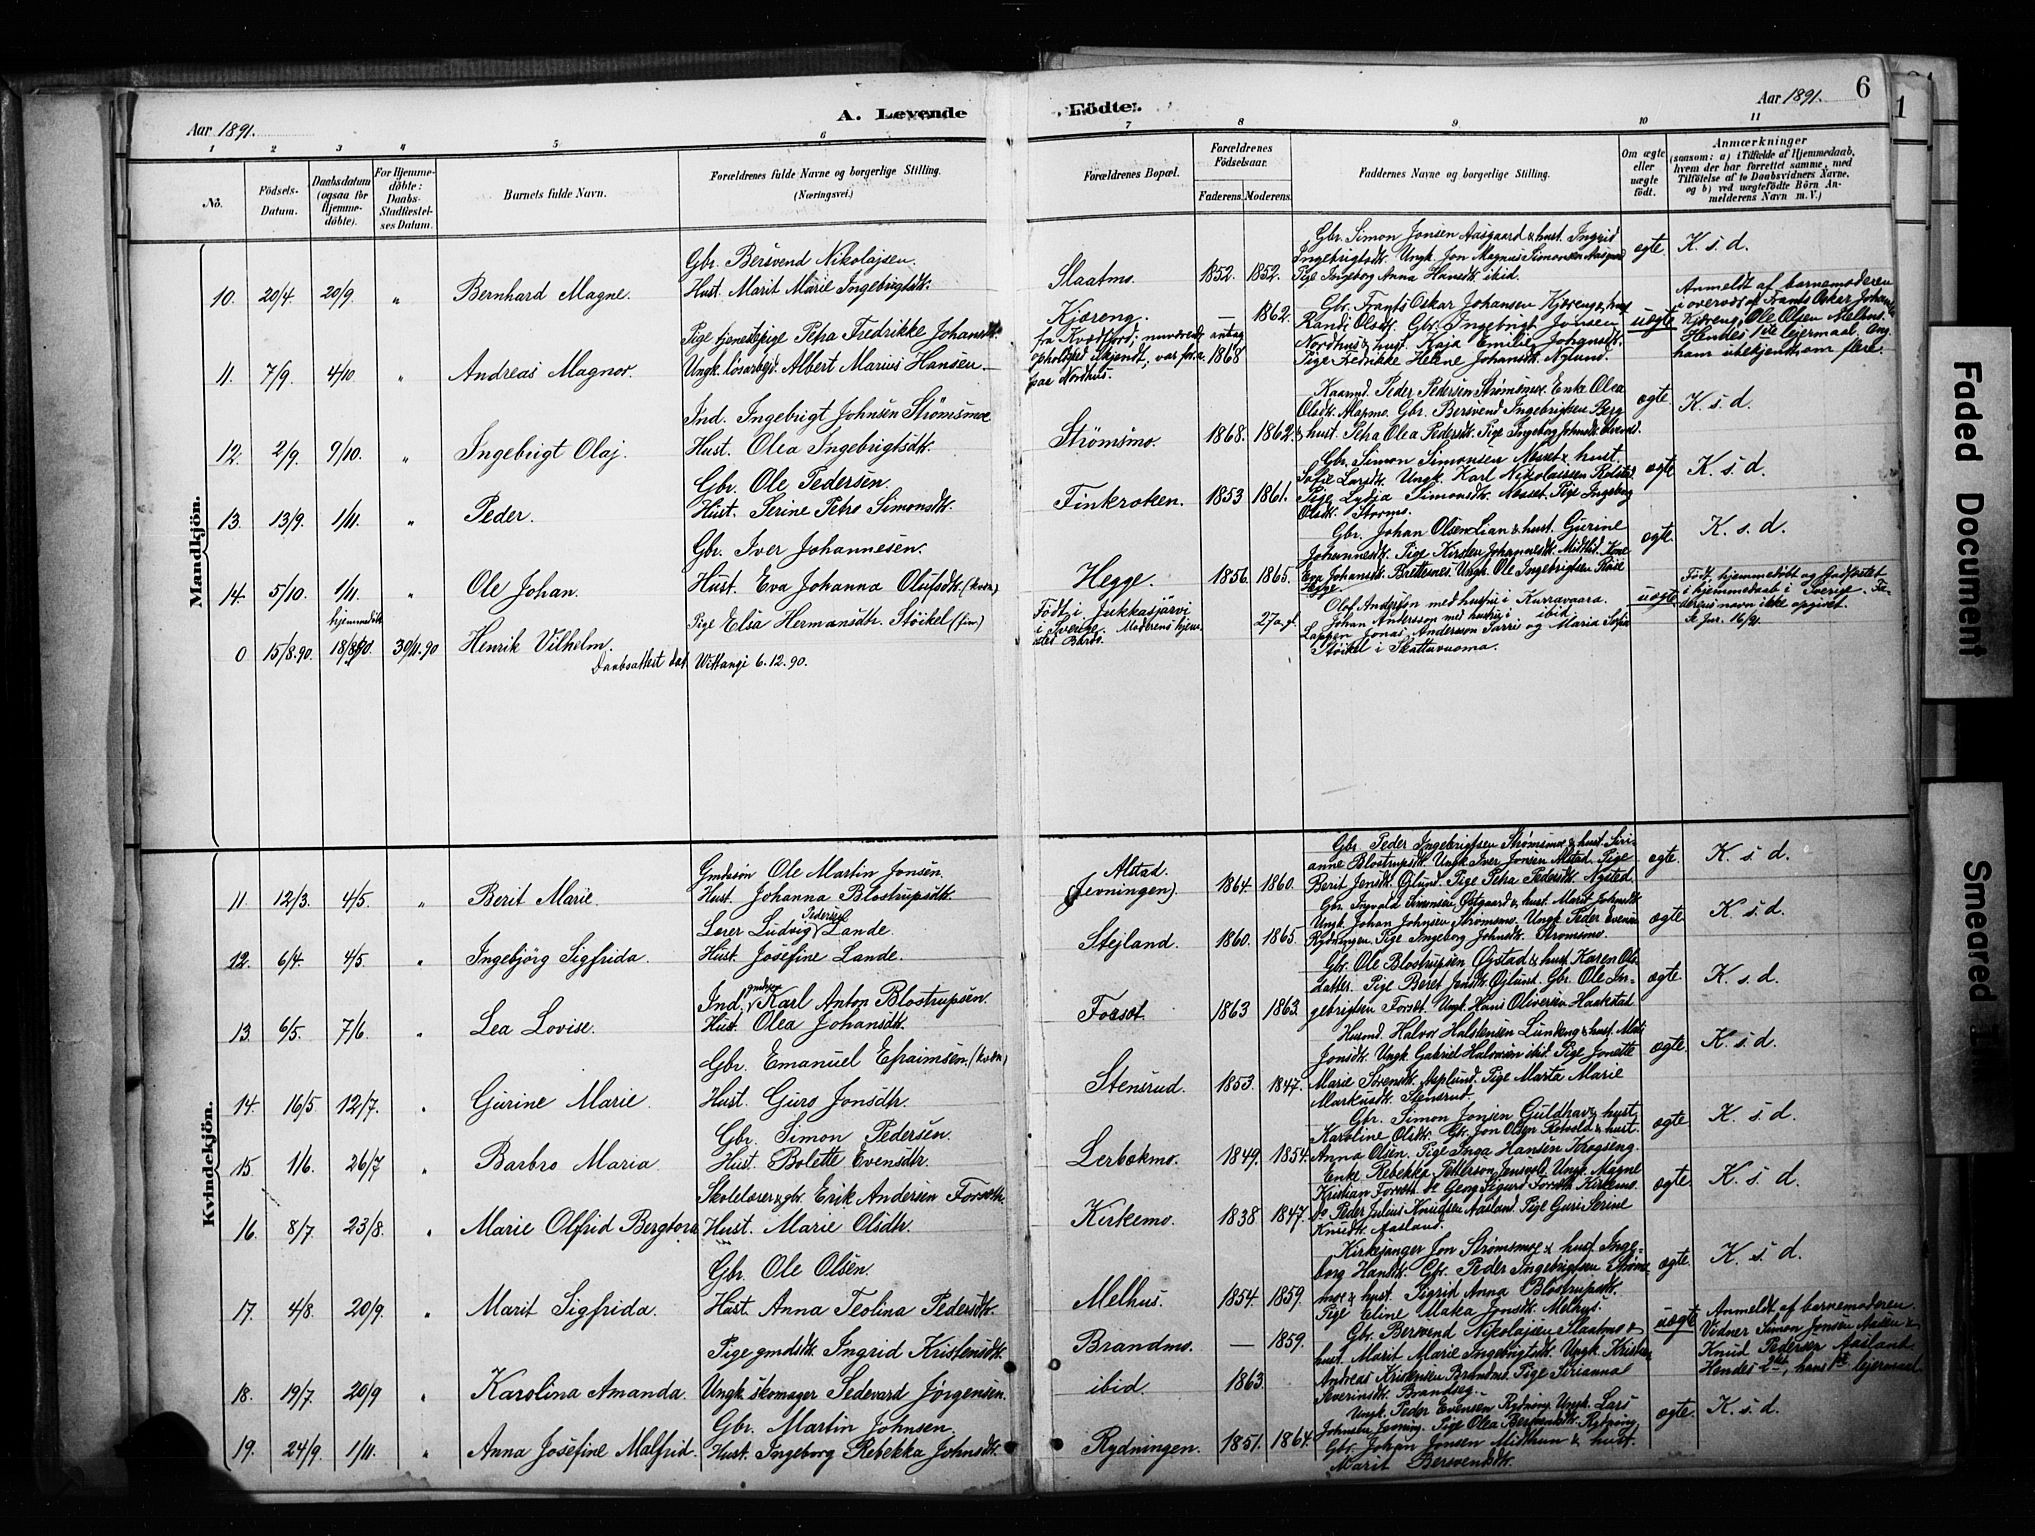 Aar 1891.
A. Levende
Födte.
Aar 1891.
6
1 2 3 4 5 6
7 8 9 10 11
No.
Födsels-Datum.
Daabsdatum (ogsaa for Hjemme-döbte).
For Hjemme-döbte: Daabs-Stadfæstel-ses Datum.
Barnets fulde Navn.
Forældrenes fulde Navne og borgerlige Stilling. (Næringsvei.)
Forældrenes Bopæl.
Forældrenes Födselsaar.
Faderens. Moderens.
Faddernes Navne og borgerlige Stilling.
Om ægte eller uægte født.
Anmærkninger
(saasom: a) i Tilfælde af Hjemmedaab, hvem der har forrettet samme, med Tilföielse af to Daabsvidners Navne, og b) ved uægtefödte Börn An-melderens Navn m. V.)
Mandkjön.
Gbr. Bersvend Nikolajsen.
10. 20/4 20/9 " Bernhard Magne. Hust. Marit Marie Ingebrigtsdtr.
Slaatmo. 1852. 1852.
Gbr. Simon Jonsen Aasgaard & hust. Ingrid
Ingebrigtsdtr. Ungk. Jon Magnus Simonsen Aasgaard
Pige Ingeborg Anna Hansdtr. ibid.
ægte K. s. d.
Pige tjenestepige Petra Fredrikke Johansdtr.
11. 7/9. 4/10 " Andreas Magnor. Ungk. løsarbejd. Albert Marius Hansen.
Kjæreng. — 1862.
fra Kvædfjord, nuværende antag.
opholdssted ukjendt, var før 1868
paa Nordhus.
Gbr. Frants Oskar Johansen Kjæreng & hust
Randi Olsdtr. Gbr. Ingebrigt Jonsen
Nordhus & hust. Kaja Emilie Johansdtr.
Pige Fredrikke Helene Johansdtr. Nylund.
uægte
Anmeldt af barnemoderen
i overvær af Frants Oskar Johansen
Kjæreng, Ole Olsen Melhus.
Hendes 1ste lejermaal. Ang.
ham ubekjendt om flere.
Ind. Ingebrigt Johnsen Strømsmoe
12. 2/9. 9/10. " Ingebrigt Olaj. Hust. Olea Ingebrigtsdtr.
Strømsmo. 1868. 1862.
Kaarmd. Peder Pedersen Strømsmoe. Enke Olea
Olsdtr. Alapmo. Gbr. Bersvend Ingebrigtsen Berg
& hust. Petra Olea Pedersdtr. Pige Ingeborg Johnsdtr.
ægte K. s. d.
Gbr. Ole Pedersen.
13. 13/9. 1/11. " Peder. Hust. Serine Petra Simonsdtr.
Finkroken. 1853 1861.
Gbr. Simon Simonsen Nesset & hust.
Sofie Larsdtr. Ungk. Karl Nikolaisen Rolstad
Pige Lydia Simonsdtr. Nesset. Pige Ingeborg
Olsdtr. Stormo.
ægte K. s. d.
Gbr. Iver Johannesen.
14. 5/10. 1/11. " Ole Johan. Hust. Eva Johanna Olufsdtr. (kvæn)
Hegge. 1856. 1865.
Gbr. Johan Olsen Lian & hust. Gurine
Johannesdtr. Pige Kirsten Johannesdtr. Midtlid. Kone
Eva Johansdtr. Brettesnes. Ungk. Ole Ingebrigtsen
Hegge.
ægte. K. s. d.
hjemmedöbt
0 15/8.90. 18/8 90. 30/11.90 Henrik Vilhelm. Pige Elsa Hermansdtr Stöikel (fin)
Daabsattest dat. Wittangi 6.12.90.
Født i Jukkasjärvi
i Sverige. Moderens hjem-
sted Bardo.
27 a. gl.
Olof Andersson med hustru i Kurravaara.
Johan Andersson med hustru i ibid.
Lappen Jonas Andersson Sarri og Maria Sofia
Stöikel i Skattuvuoma.
uægte
Født, hjemmedøbt og stadfæstet
i hjemmedaab i Sverige. Fa-
derens navn ikke opgivet.
Se Jur. 16/91.
Kvindekjön.
Gmdssøn Ole Martin Jonsen.
11. 12/3. 4/5. " Berit Marie. Hust. Johanna Blostrupsdtr.
Alstad. (Jevningen). 1864. 1860.
Gbr. Peder Ingebrigtsen Strømsmo & hust. Siri-
anne Blostrupsdtr. Ungk. Iver Jonsen Alstad. Pige
Berit Jensdtr. Øjlund. Pige Petra Pedersdtr. Nystad.
ægte. K. s. d.
Lærer Ludvig Pedersen Lande.
12. 6/4. 4/5. " Ingebjörg Sigfrida. Hust. Josefine Lande.
Stejland. 1860. 1865.
Gbr. Ingvald Simonsen Østgaard & hust. Marit Johnsdtr
Ungk. Johan Johnsen Strømsmo. Ungk. Peder Evensen
Rydningen. Pige Ingeborg Johnsdtr. Strømsmo.
ægte. K. s. d.
Ind. gmdssøn Karl Anton Blostrupsen.
13. 6/5. 7/6. " Lea Lovise. Hust. Olea Johansdtr.
Forsæt. 1863 1863.
Gbr. Ole Blostrupsen Øystad & hust. Karen Ols-
datter. Pige Beret Jensdtr. Øjlund. Gbr. Ole In-
gebrigtsen Forset. Ungk. Hans Oliversen Haakstad
ægte. K. s. d.
Gbr. Emanuel Efraimsen. (kvæn)
14. 16/5 12/7. " Gurine Marie. Hust. Guro Jonsdtr.
Stensrud. 1853. 1847.
Husmd. Halvor Halstensen Lundeng & hust. Mari
Jonsdtr. Ungk. Gabriel Halvorsen ibid. Pige Jonette
Marie Sørensdtr. Asplund. Pige Marta Marie
Markusdtr. Stensrud.
ægte. K. s. d.
Gbr. Simon Pedersen.
15. 1/6. 26/7 " Barbro Maria. Hust. Bolette Evensdtr.
Lerbækmo. 1849. 1854.
Gbr. Simon Jonsen Guldhav & hust.
Karoline Olsdtr. Gbr. Jon Olsen Rotvold & hust.
Anna Olsen. Pige Inga Hansen Krogseng.
ægte K. s. d.
Skolelærer & gbr. Erik Andersen Forseth.
16. 8/7. 23/8. " Marie Olfrid Bergtora. Hust. Marie Olsdtr.
Kirkemo. 1838 1847.
Enke Rebekka Petterson Jensvold. Ungk. Magne
Kristian Forseth. do Georg Sigurd Forseth Kirkemo.
do Peder Julius Knudsen Aasland. Pige Guri Serine
Knudsdtr. Aasland.
ægte. K. s. d.
Gbr. Ole Olsen.
17. 4/8. 20/9. " Marit Sigfrida. Hust. Anna Teolina Pedersdtr.
Melhus. 1854. 1859.
Kirkesanger Jon Strømsmoe & hust. Inge-
borg Hansdtr. Gbr. Peder Ingebrigtsen Strøms-
moe & hust. Sigrid Anna Blostrupsdtr.
Pige Eline Maka Jonsdtr. Melhus.
ægte. K. s. d.
Pige gmdsdtr. Ingrid Kristensdtr.
18. 19/7. 20/9 " Karolina Amanda. Ungk. skomager Sedevard Jørgensen.
Brandmo. — 1859.
ibid 1863.
Gbr. Bersvend Nikolajsen Slaatmo &
hust. Marit Marie Ingebrigtsdtr. Ungk. Kristen
Andreas Kristensen Brandmo. Pige Sirianna
Severinsdtr. Brandseg.
uægte
Anmeldt af barnemoderen.
Vidner Simon Jonsen Aasen &
Knud Pedersen Aasland.
Hendes 2det, hans 1ste lejermaal
Gbr. Martin Johnsen.
19. 24/9. 1/11. " Anna Josefine Malfrid. Hust. Ingeborg Rebekka Johnsdtr.
Rydningen. 1851. 1864.
Ungk. Peder Evensen Rydning. Ungk. Lars
Johnsen Jevning. Pige Olea Bersvendsdtr. Rydning
Gbr. Johan Jonsen Midthun & hust.
Marit Bersvendsdtr.
ægte. K. s. d.
1
Faded Document
Smeared